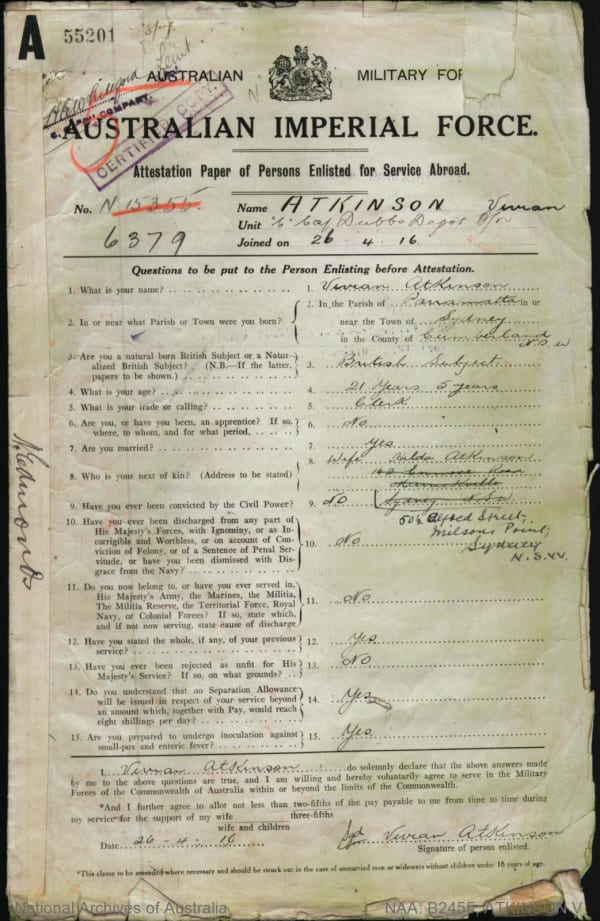 A
55201
Lieut
CERTIFIED COPY.
AUSTRALIAN MILITARY FOR
AUSTRALIAN IMPERIAL FORCE.
Attestation Paper of Persons Enlisted for Service Abroad.
No. N 15355. Name ATKINSON Vivian
6379 Unit "C" Coy Dubbo Depot
Joined on 26 . 4 . 16.
Questions to be put to the Person Enlisting before Attestation.
1. What is your name? 1. Vivian Atkinson
2. In or near what Parish or Town were you born? 2. In the Parish of Parramatta in or
near the Town of Sydney
in the County of Cumberland
N.S.W
3. Are you a natural born British Subject or a Natur-
alized British Subject? (N.B.—If the latter, 3. British Subject
papers to be shown.)
4. What is your age? 4. 21 Years 5 years
5. What is your trade or calling? 5. Clerk
6. Are you, or have you been, an apprentice? If so, 6. No
where, to whom, and for what period,
7. Are you married? 7. Yes
8. Who is your next of kin? (Address to be stated) 8. Wife Hilda Atkinson
Road
Sydney N.S.W
9. Have you ever been convicted by the Civil Power? 9. No
50½ Alfred Street,
Milsons Point,
Sydney
N.S.W.
10. Have you ever been discharged from any part of
His Majesty's Forces, with Ignominy, or as In-
corrigible and Worthless, or on account of Con-
viction of Felony, or of a Sentence of Penal Ser- 10. No
vitude, or have you been dismissed with Dis-
grace from the Navy?
11. Do you now belong to, or have you ever served in,
His Majesty's Army, the Marines, the Militia,
The Militia Reserve, the Territorial Force, Royal 11. No
Navy, or Colonial Forces? If so, state which,
and if not now serving, state cause of discharge
12. Have you stated the whole, if any, of your previous 12. Yes
service?
13. Have you ever been rejected as unfit for His 13. No
Majesty's Service? If so, on what grounds?
14. Do you understand that no Separation Allowance
will be issued in respect of your service beyond 14. Yes
an amount which, together with Pay, would reach
eight shillings per day?
15. Are you prepared to undergo inoculation against 15. Yes
small-pox and enteric fever?
I, Vivian Atkinson do solemnly declare that the above answers made
by me to the above questions are true, and I am willing and hereby voluntarily agree to serve in the Military
Forces of the Commonwealth of Australia within or beyond the limits of the Commonwealth.
*And I further agree to allot not less than two-fifths of the pay payable to me from time to time during
three-fifths
my service for the support of my wife
wife and children
Date 26 - 4 - 16 Sgd Vivian Atkinson
Signature of person enlisted.
*This clause to be amended where necessary and should be struck out in the case of unmarried men or widowers without children under 18 years of age.
National Archives of Australia NAA: B2455, ATKINSON V